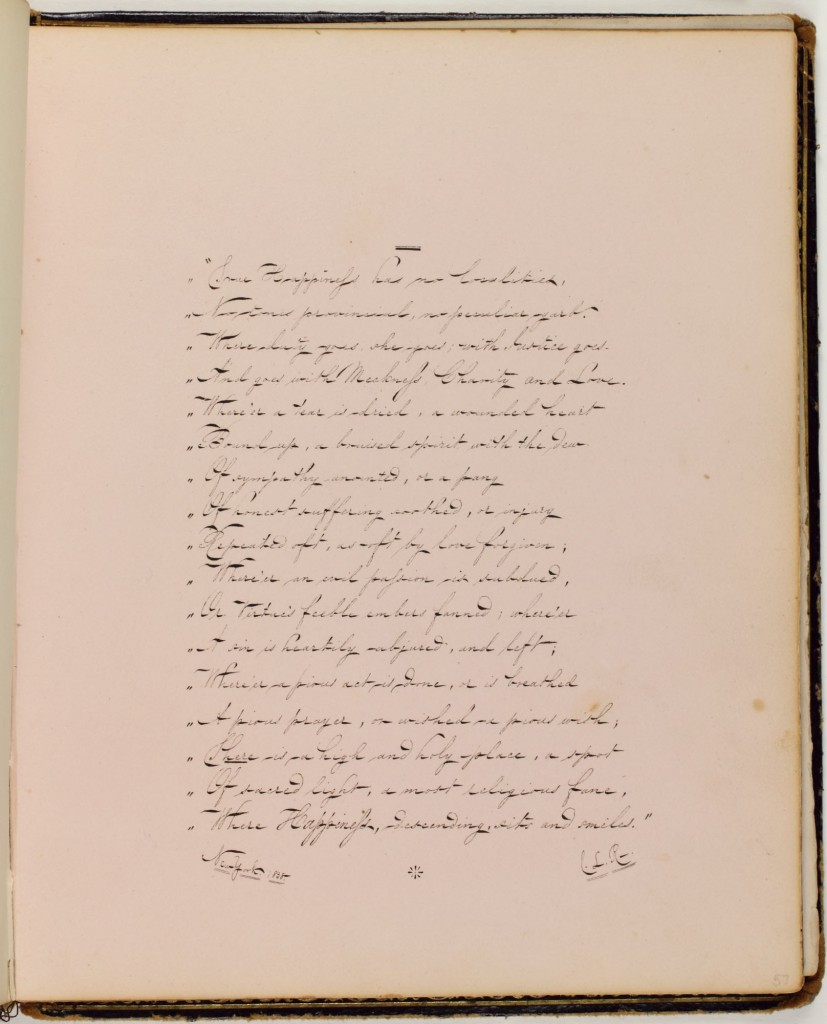 "True Happiness has no localities,
"No tones provincial, no peculiar garb.
"Where duty goes, she goes; with Justice goes.
"And goes with Meekness, Charity and Love.
"Where'er a tear is dried, a wounded heart
"Bound up, a bruised spirit with the dew
"Of sympathy anointed, or a pang
"Of honest suffering soothed, or injury
"Repeated oft, as oft by love forgiven;
"Where'er an evil passion is subdued,
"Or Virtue's feeble embers fanned; where'er
"A sin is heartily abjured, and left;
"Where'er a pious act is done, or is breathed
"A pious prayer, or wished a pious wish;
"There is a high and holy place, a spot
"Of sacred light, a most religious fane,
"Where Happiness, descending, sits and smiles."
New York
C. L. R.
57